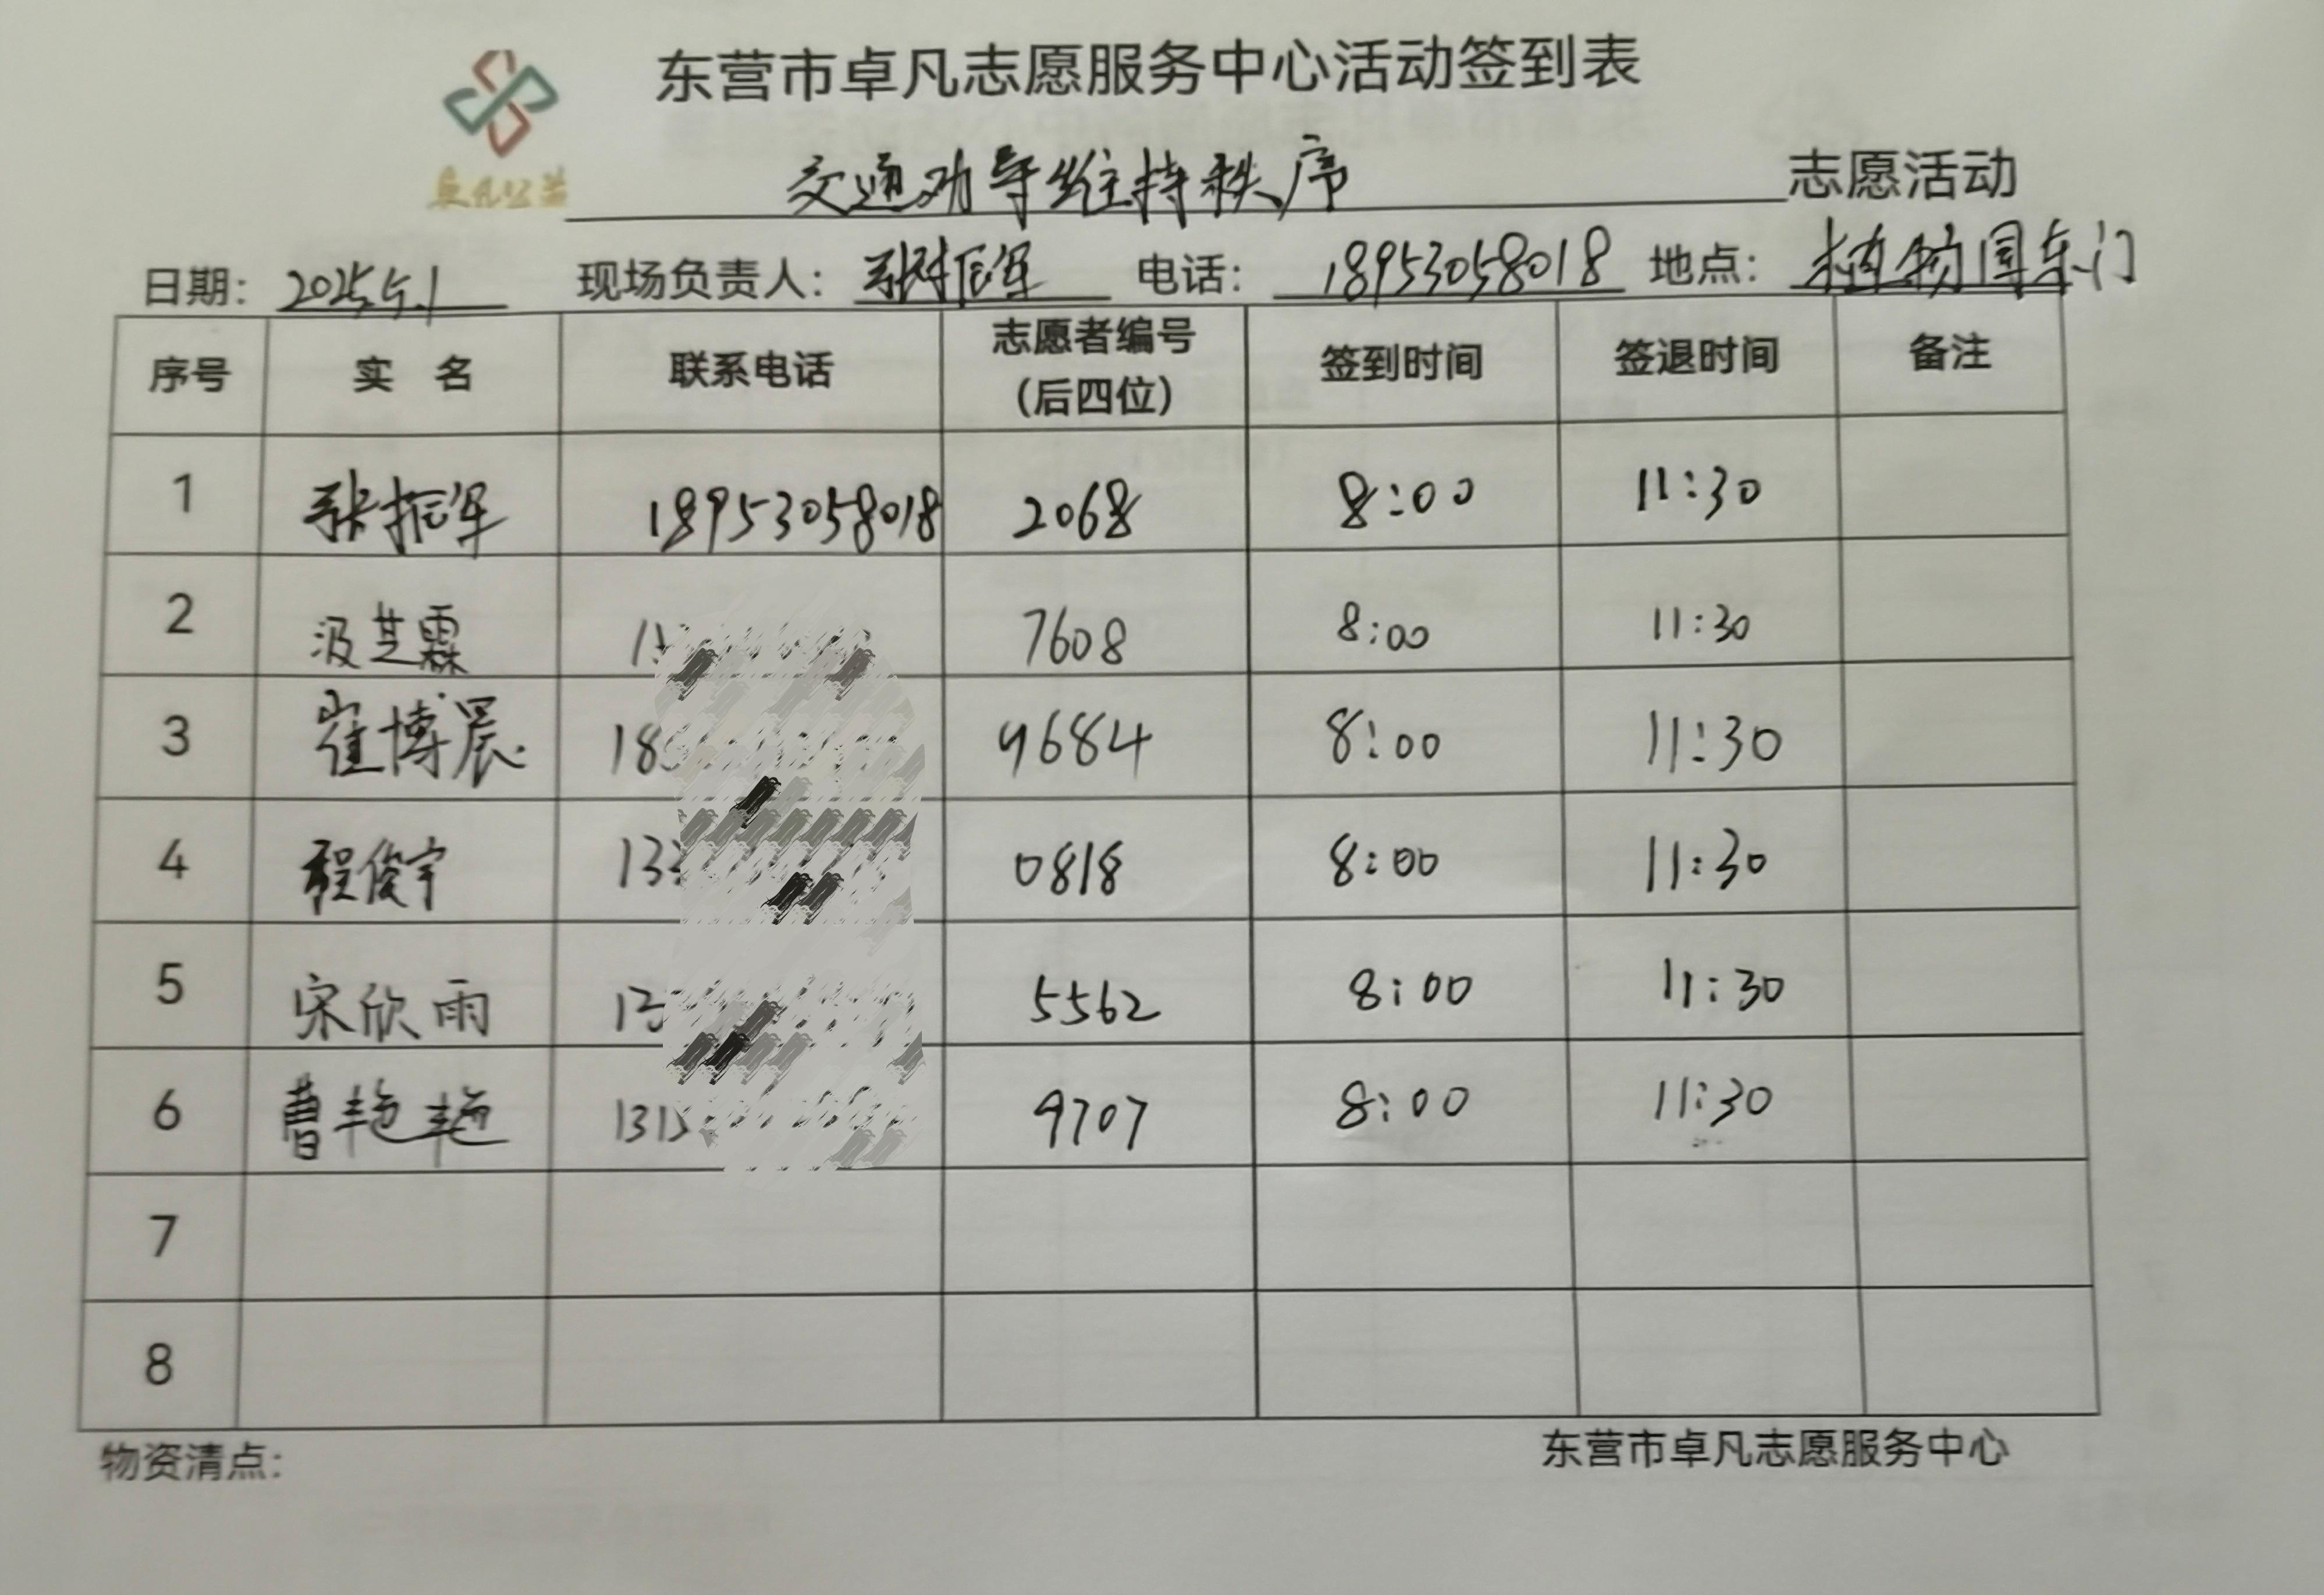 东营市卓凡志愿服务中心活动签到表
卓凡公益
交通劝导维持秩序 志愿活动
日期: 2025.5.1 现场负责人: 张振军 电话: 18953058018 地点: 植物园东门
序号 实 名 联系电话 志愿者编号(后四位) 签到时间 签退时间 备注
1 张振军 18953058018 2068 8:00 11:30
2 汲芝霖 15 7608 8:00 11:30
3 崔博晨 18 9684 8:00 11:30
4 程俊宇 133 0818 8:00 11:30
5 宋欣雨 13 5562 8:00 11:30
6 曹艳艳 1315 9707 8:00 11:30
7
8
物资清点: 东营市卓凡志愿服务中心